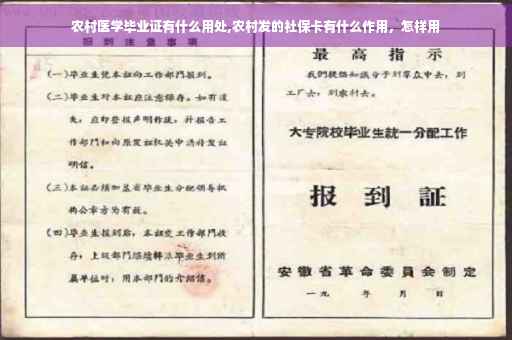 农村医学毕业证有什么用处,农村发的社保卡有什么作用，怎样用
报到注意事项
(一)毕业生凭本证向工作部門报到。
(二)毕业生对本证应注意保存。如有遗
失，应即登报声明作废，并报告工
作部門和向原发证机关申請补发证
明信。
(三)本证必须加盖省毕业生分配領导机
构公章方为有效。
(四)毕业生报到后，本证交工作部門收
存；上級部門
属单位时，用本部門的介紹信。
最高指示
我們提倡知識分子到羣众中去，到
工厂去，到农村去。
大专院校毕业生統一分配工作
报到証
安徽省革命委員会制定
一九 年 月 日